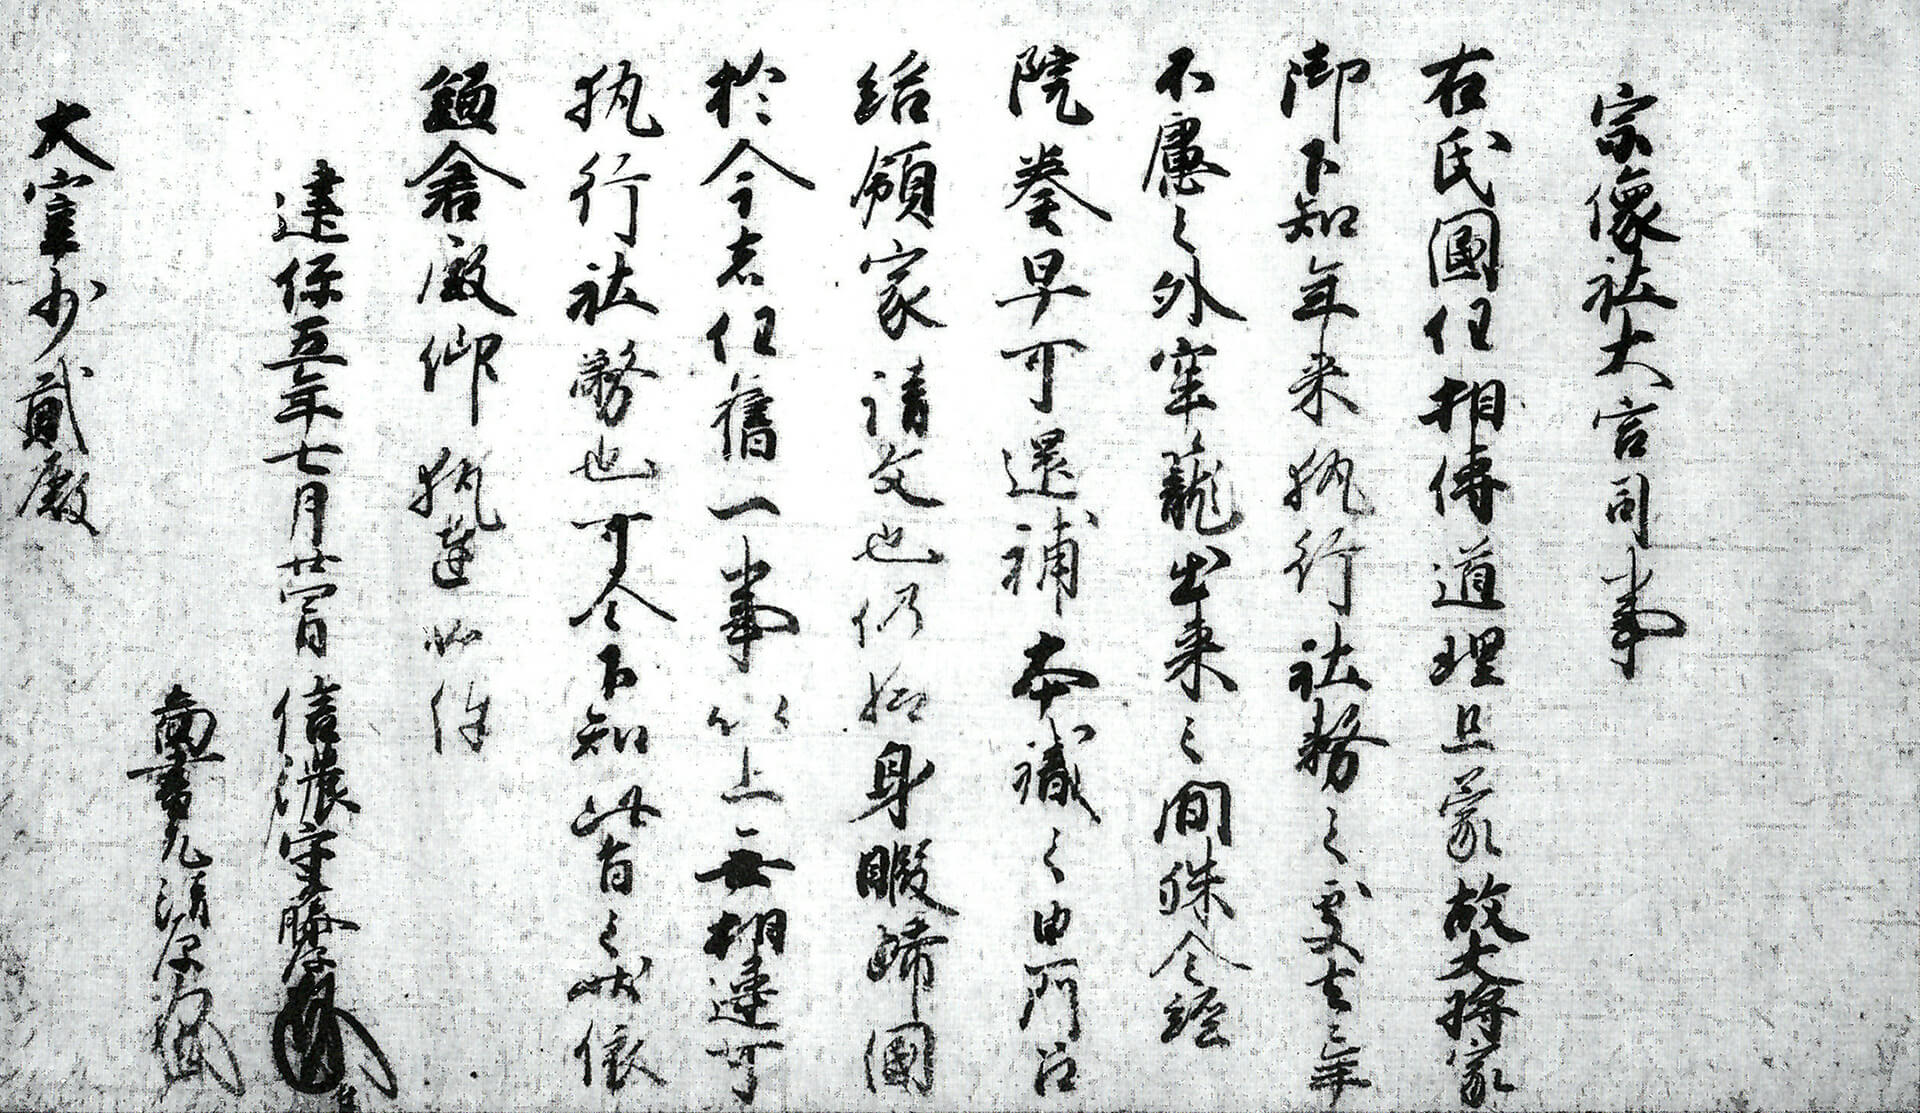 宗像社大宮司事
右氏國任相傳道理且蒙故大将家
御下知年来執行社務之處去三年
不慮之外牢籠出来之間殊令経
院奏早可還補本職之由所召
給領家請文也仍給身暇歸國
於今者任舊一事以上無相違可
執行社務也可令下知此旨之状依
鎌倉殿仰執達如件
建保五年七月廿四日信濃守藤原
圖書允清原
大宰少貳殿